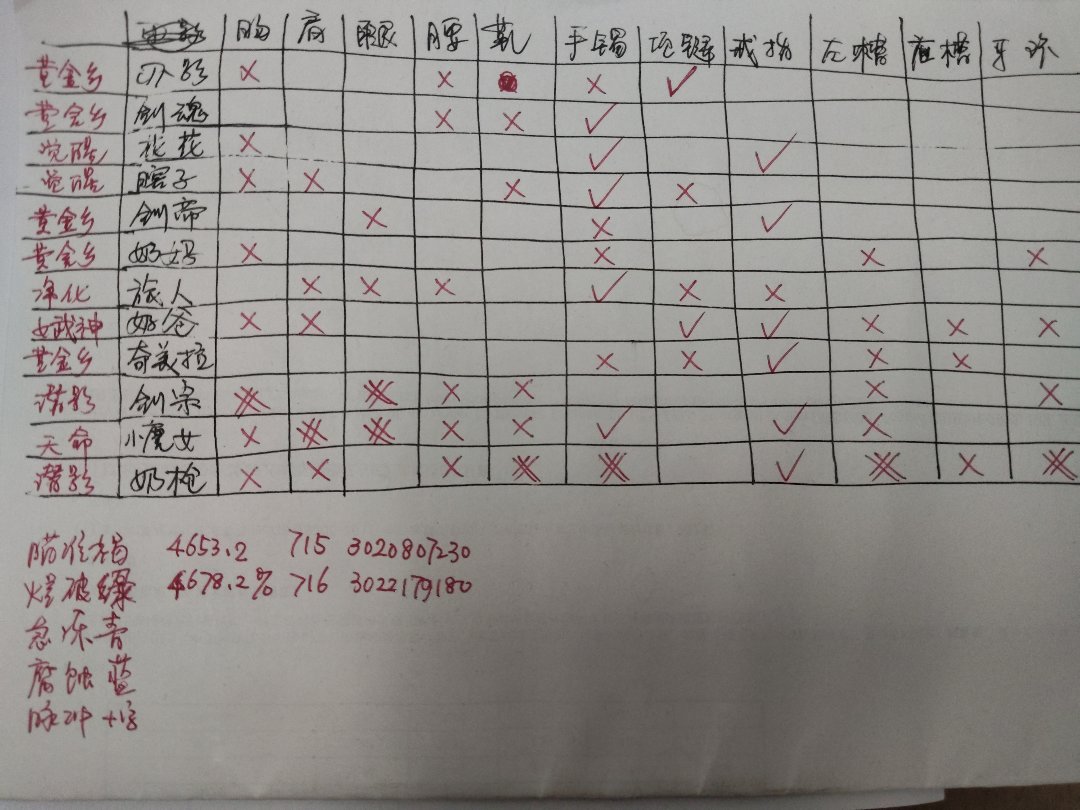 胸 肩 腿 腰 靴 手镯 项链 戒指 左槽 右槽 耳环
黄金乡 刃影 × × × ✓
黄金乡 剑魂 × × ✓
觉醒 花花 × ✓ ✓
觉醒 瞎子 × × × ✓ ×
黄金乡 剑帝 × × ✓
黄金乡 奶妈 × × × ×
净化 旅人 × × × ✓ × ×
女武神 奶爸 × × ✓ ✓ × × ×
黄金乡 奇美拉 × × ✓ × ×
潜影 剑宗 × × × × × ×
天命 小魔女 × × × × × ✓ ✓ ×
潜影 奶枪 × × × × × ✓ × × ×
瞄准褐 4653.2 715 3020807230
爆破绿 4678.2% 716 3022179180
急冻青
腐蚀蓝
脉冲